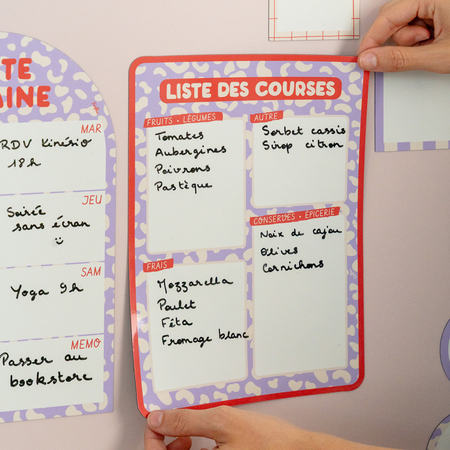 TE
AINE
MAR
RDV Kinésio
18h
JEU
Soirée
sans écran
SAM
Yoga 9h
MEMO
Passer au
bookstore
LISTE DES COURSES
FRUITS • LÉGUMES
Tomates
Aubergines
Poivrons
Pastèque
AUTRE
Sorbet cassis
Sirop citron
FRAIS
Mozzarella
Poulet
Féta
Fromage blanc
CONSERVES • ÉPICERIE
Noix de cajou
Olives
Cornichons